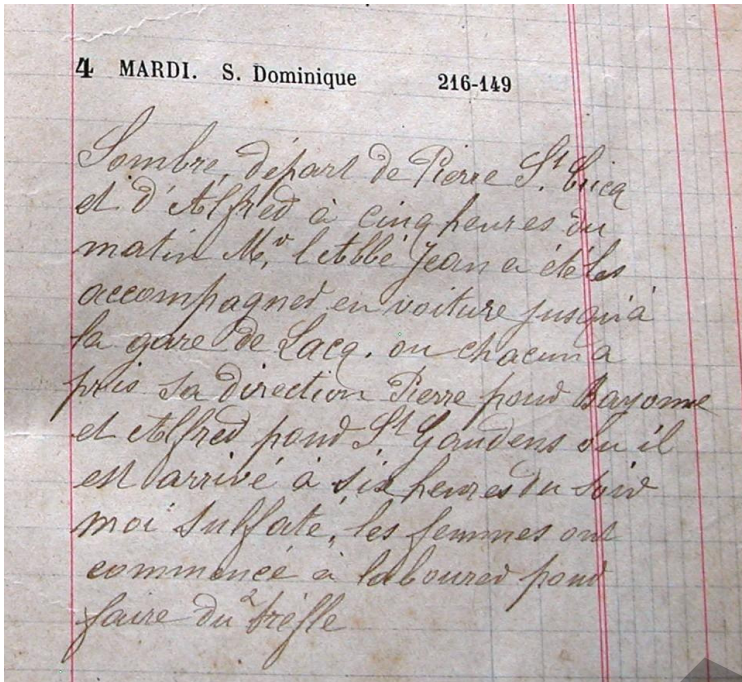 4 MARDI. S. Dominique 216-149
Sombre, départ de Pierre St. Cricq
et d'Alfred à cinq heures du
matin Mr. l'Abbé Jean a été les
accompagner en voiture jusqu'à
la gare de Lacq. ou chacun a
pris sa direction Pierre pour Bayonne
et Alfred pour St Gaudens ou il
est arrivé à six heures du soir
moi sulfaté, les femmes ont
commencé à labourer pour
faire du trèfle